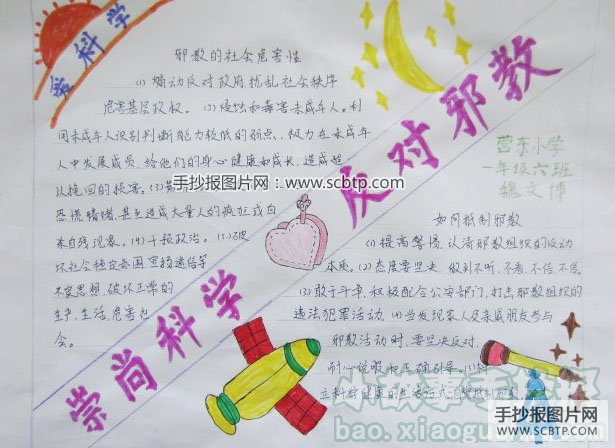 爱科学
邪教的社会危害性
(1) 煽动反对政府,扰乱社会秩序
危害基层政权。(2) 侵蚀和毒害未成年人。利
用未成年人识别判断能力较低的弱点,极力在未成年
人中发展成员,给他们的身心健康和成长,造成难
以挽回的损害。(3)
恐慌情绪,甚至造成大量人的疯狂或自
杀在线现象。(4) 干预政治。(5) 破
坏社会稳定
不良思想,破坏正常的
生产、生活,危害社
会。
崇尚科学 反对邪教
营东小学
一年级六班
魏文博
如何抵制邪教
(1) 提高警惕,认清邪教组织的反动
本质。(2) 态度要坚决,做到不听、不看、不信、不传。
(3) 敢于斗争,积极配合公安部门,打击邪教组织的
违法犯罪活动。(4) 当发现家人及亲戚朋友参与
邪教活动时,要坚决反对,
耐心说服和正确引导。(5) 树
立科学健康的生活方式,自觉抵制邪教
手抄报图片网:www.scbtp.com
bao.xiaogushi
手抄报图片网
WWW.SCBTP.COM